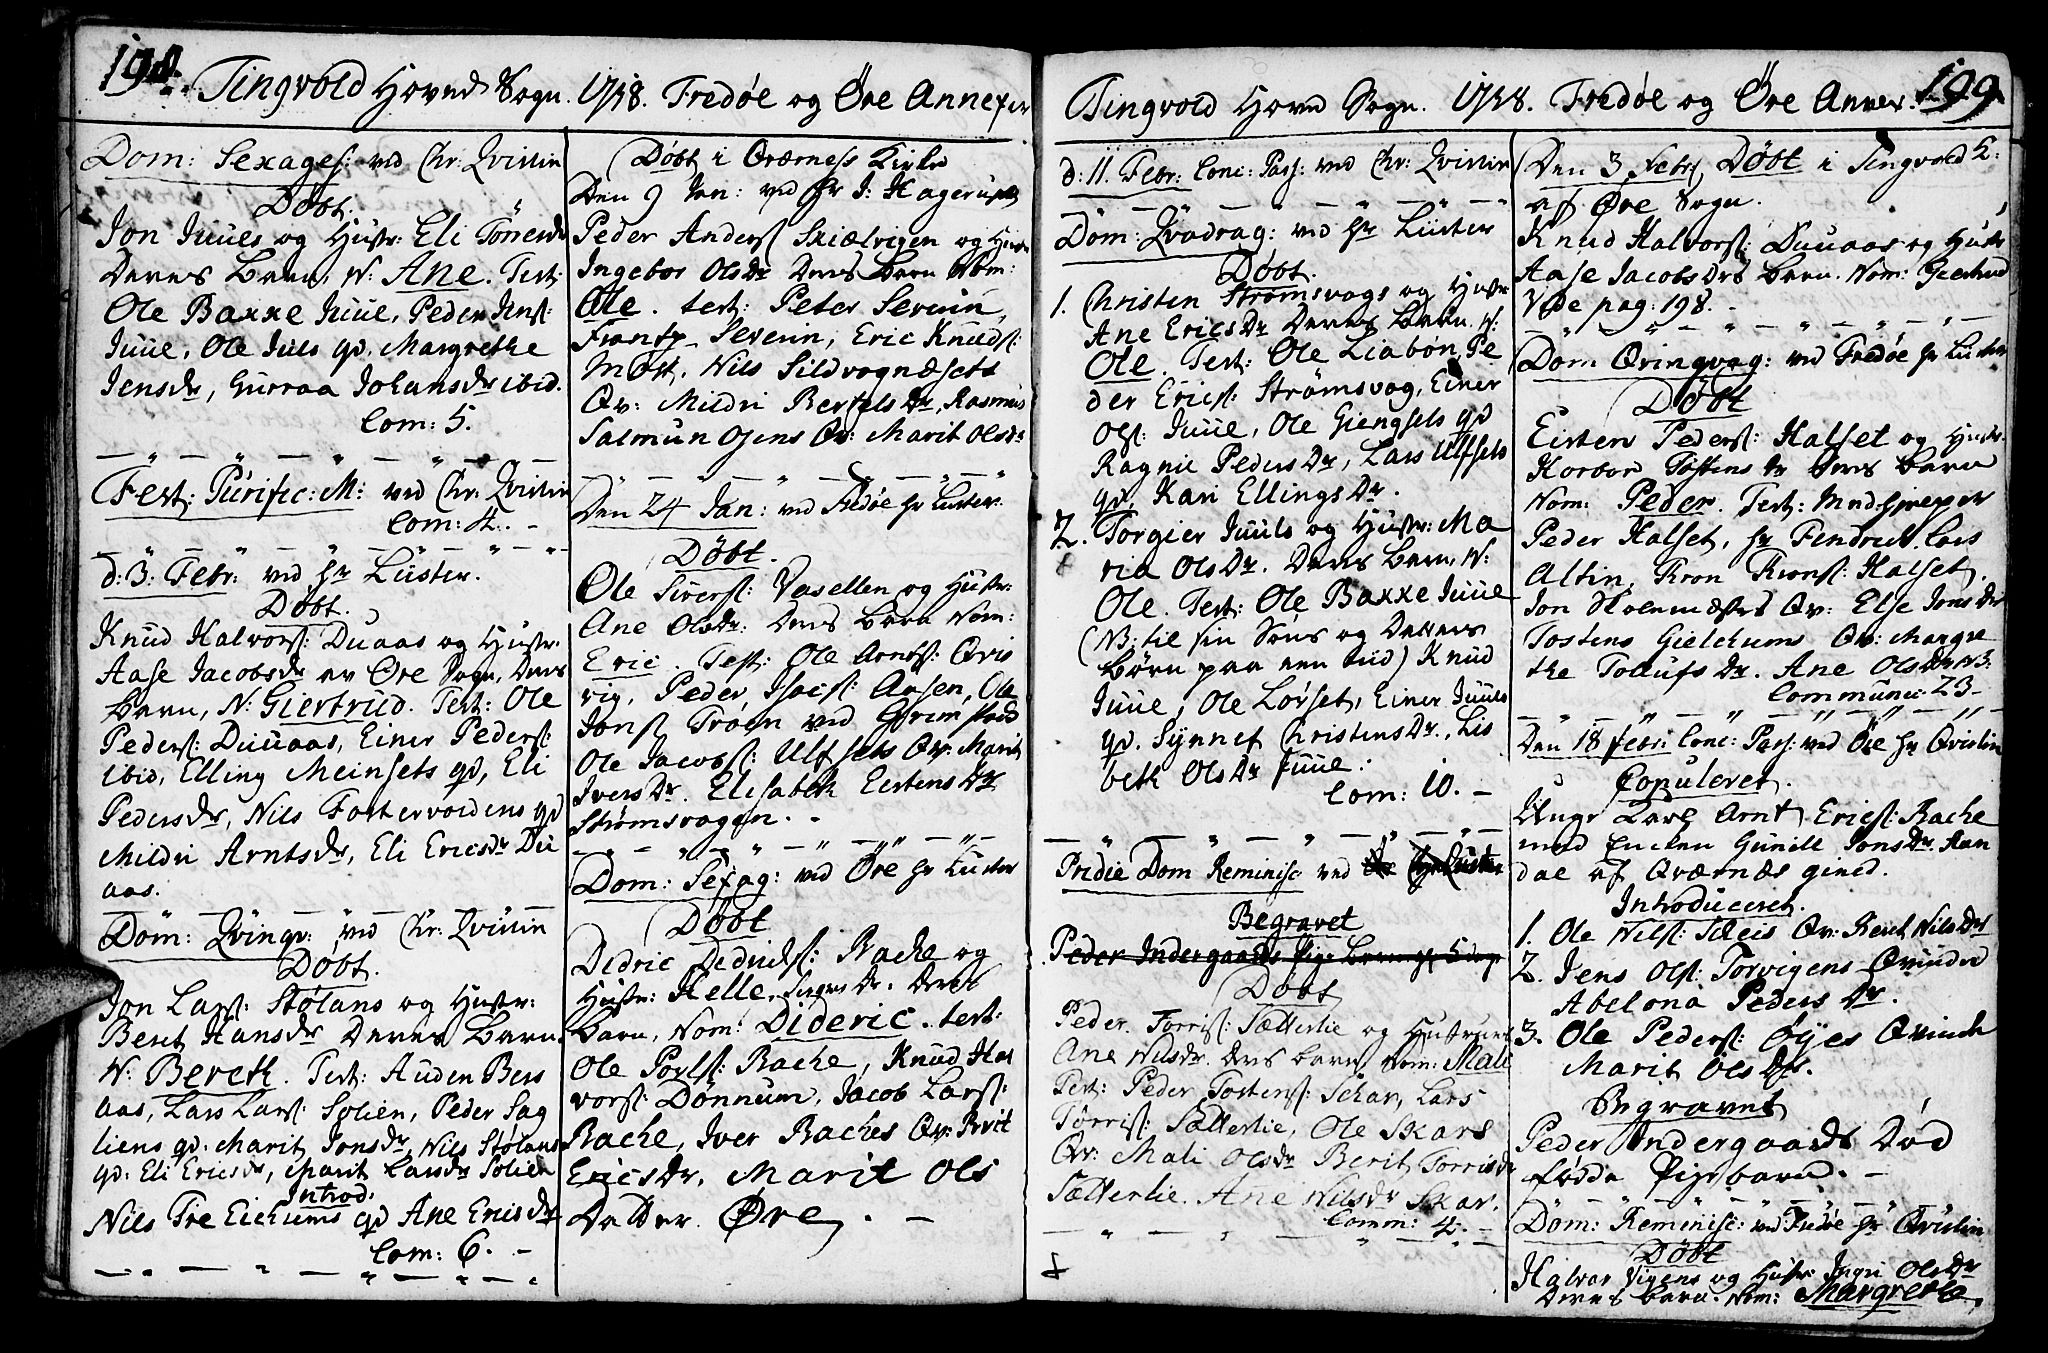 198. Tingvold Hoved Sogn. 1758. Fredøe og Øre Annexer
Dom: Sexages: ved Chr: Qvislin
Døbt.
Jon Juuls og Hustr: Eli Tønesdr
Deres Barn, N: Ane. Test:
Ole Bakke Juul, Peder Jens:
Juul, Ole Juls qd. Margrethe
Jensdr, Gurraa Johansdr ibid.
Com: 5.
Fest: Purific: M: ved Chr: Qvislin
Com: 4.
d: 3: Febr: ved Hr Lüster.
Døbt.
Knud Halvors: Duaas og Hustr:
Aase Jacobsdr av Øre Sogn, Deres
Barn, N: Giertrud. Test: Ole
Peders: Duuaas, Einer Peders:
ibid, Elling Meinsets qd, Eli
Pedersdr, Nils Fostervoldens qd
Mildri Arntsdr, Eli Ericsdr Du
aas.
Dom: Qvinqv: ved Chr: Qvislin
Døbt.
Jon Lars: Stølans og Hustr:
Beret Hansdr Deres Barn
N: Bereth. Test: Auden Bers
aas, Lars Lars: Solien, Peder Sag
liens qd: Marit Jonsdr, Nils Stølans
qd: Eli Ericsdr, Marit Larsdr Solien
Introd:
Nils Tre Eichums qd Ane Ericsdr
Com: 6.
Døbt i Qværness Kirke
Den 9 Jan: ved Hr J: Hagerup
Peder Anders: Skiælvigen og Hustr
Ingebor Olsdr Deres Barn Nom:
Ole. test: Peter Severin,
Frantz Severin, Eric Knuds:
Most, Nils Sildvognæsets
Qv: Mildri Bertelsdr, Rasmus
Salmun Ogens Qv: Marit Olsdr
Den 24 Jan: ved Fredøe Hr Lüster.
Døbt.
Ole Sivers: Vasellen og Hustr:
Ane Olsdr: Deres Barn Nom:
Eric. Test: Ole Arnts: Qvis
vig, Peder Isacs: Aasen, Ole
Jons: Trøen ved Grimstad
Ole Jacobs: Ulfsets Qv: Marit
Iversdr. Elisabeth Eistensdr
Strømsvagen.
Dom: Sexag: ved Øre Hr Lüster
Døbt
Didric Didrics: Bache og
Hustr: Helle Siversdr. Deres
Barn, Nom: Dideric. test:
Ole Pouls: Bache, Knud Hal
vors: Dønnum, Jacob Lars:
Bache, Iver Baches Qv: Berit
Ericsdr, Marit Ols
Datter Øre.
Tingvold Hoved Sogn. 1758. Fredøe og Øre Annex. 199
d: 11. Febr: Conc: Pass: ved Chr: Qvislin
Dom: Qvadrag: ved Hr Lüster
Døbt.
1. Christen Strømsvogs og Hustr
Ane Ericsdr Deres Barn. N:
Ole. Test: Ole Liabøn, Pe
der Erics: Strømsvog, Einer
Ols: Juul, Ole Giengsets qd
Ragnil Pedersdr, Lars Ulfsets
qd Kari Ellingsdr.
2. Torgier Juuls og Hustr: Ma
ria Olsdr. Deres Barn, N:
Ole. Test: Ole Bakke Juul
(NB: til sin Søns og Datters
Børn paa een tiid) Knud
Juul, Ole Lørset, Einer Juuls
qd. Synnef Christensdr, Lis
beth Olsdr Juul.
Com: 10.
Pridie Dom Reminisc ved
Begravet
Peder Indergaards Pige Barn
Døbt
Peder Torris: Sætterlie og Hustrue
Ane Nilsdr. Deres Barn, Nom: Mali
Test: Peder Tostens: Schar, Lars
Torris: Sætterlie, Ole Skars
Qv: Mali Olsdr Berit Torrisdr
Sætterlie. Ane Nilsdr Skar.
Comm: 4.
Den 3 Febr, Døbt i Tingvold K:
af Øre Sogn.
Knud Halvors: Duuaas og Hustr
Aase Jacobsdrs Barn. Nom: Giertrud
Vide pag: 198.
Dom Qvinqvag: ved Fredøe Hr Lüster
Døbt
Eisten Peders: Halset og Hustr.
Korbor Tostens dr Deres Barn
Nom: Peder. Test:
Peder Halset, Hr Lars
Altin, Tron Trons: Halset,
Jon Skolemesters Qv: Else Jonsdr
Tostens Gielchums Qv: Margre
the Tollufsdr. Ane Olsdr
Communic: 23
Den 18 febr: Conc: Pass: ved Øre Hr Qvislin
Copuleret.
Unge Karl Arnt Erics: Bache
med Encken Gunild Jonsdr. Aan
dal af Qværnæs gield.
Introduceret.
1. Ole Nils: Scleis Qv: Beret Nilsdr
2. Jens Ols: Torvigens Qvinde
Abelona Pedersdr.
3. Ole Peders: Øyes Qvinde
Marit Olsdr.
Begravet
Peder Indergaards Død
fødde Pigebarn.
Dom: Reminisc: ved Fredøe Hr Qvislin
Døbt
Halvor Vigens og Hustr: Ingri Olsdr
Deres Barn. Nom: Margrethe,